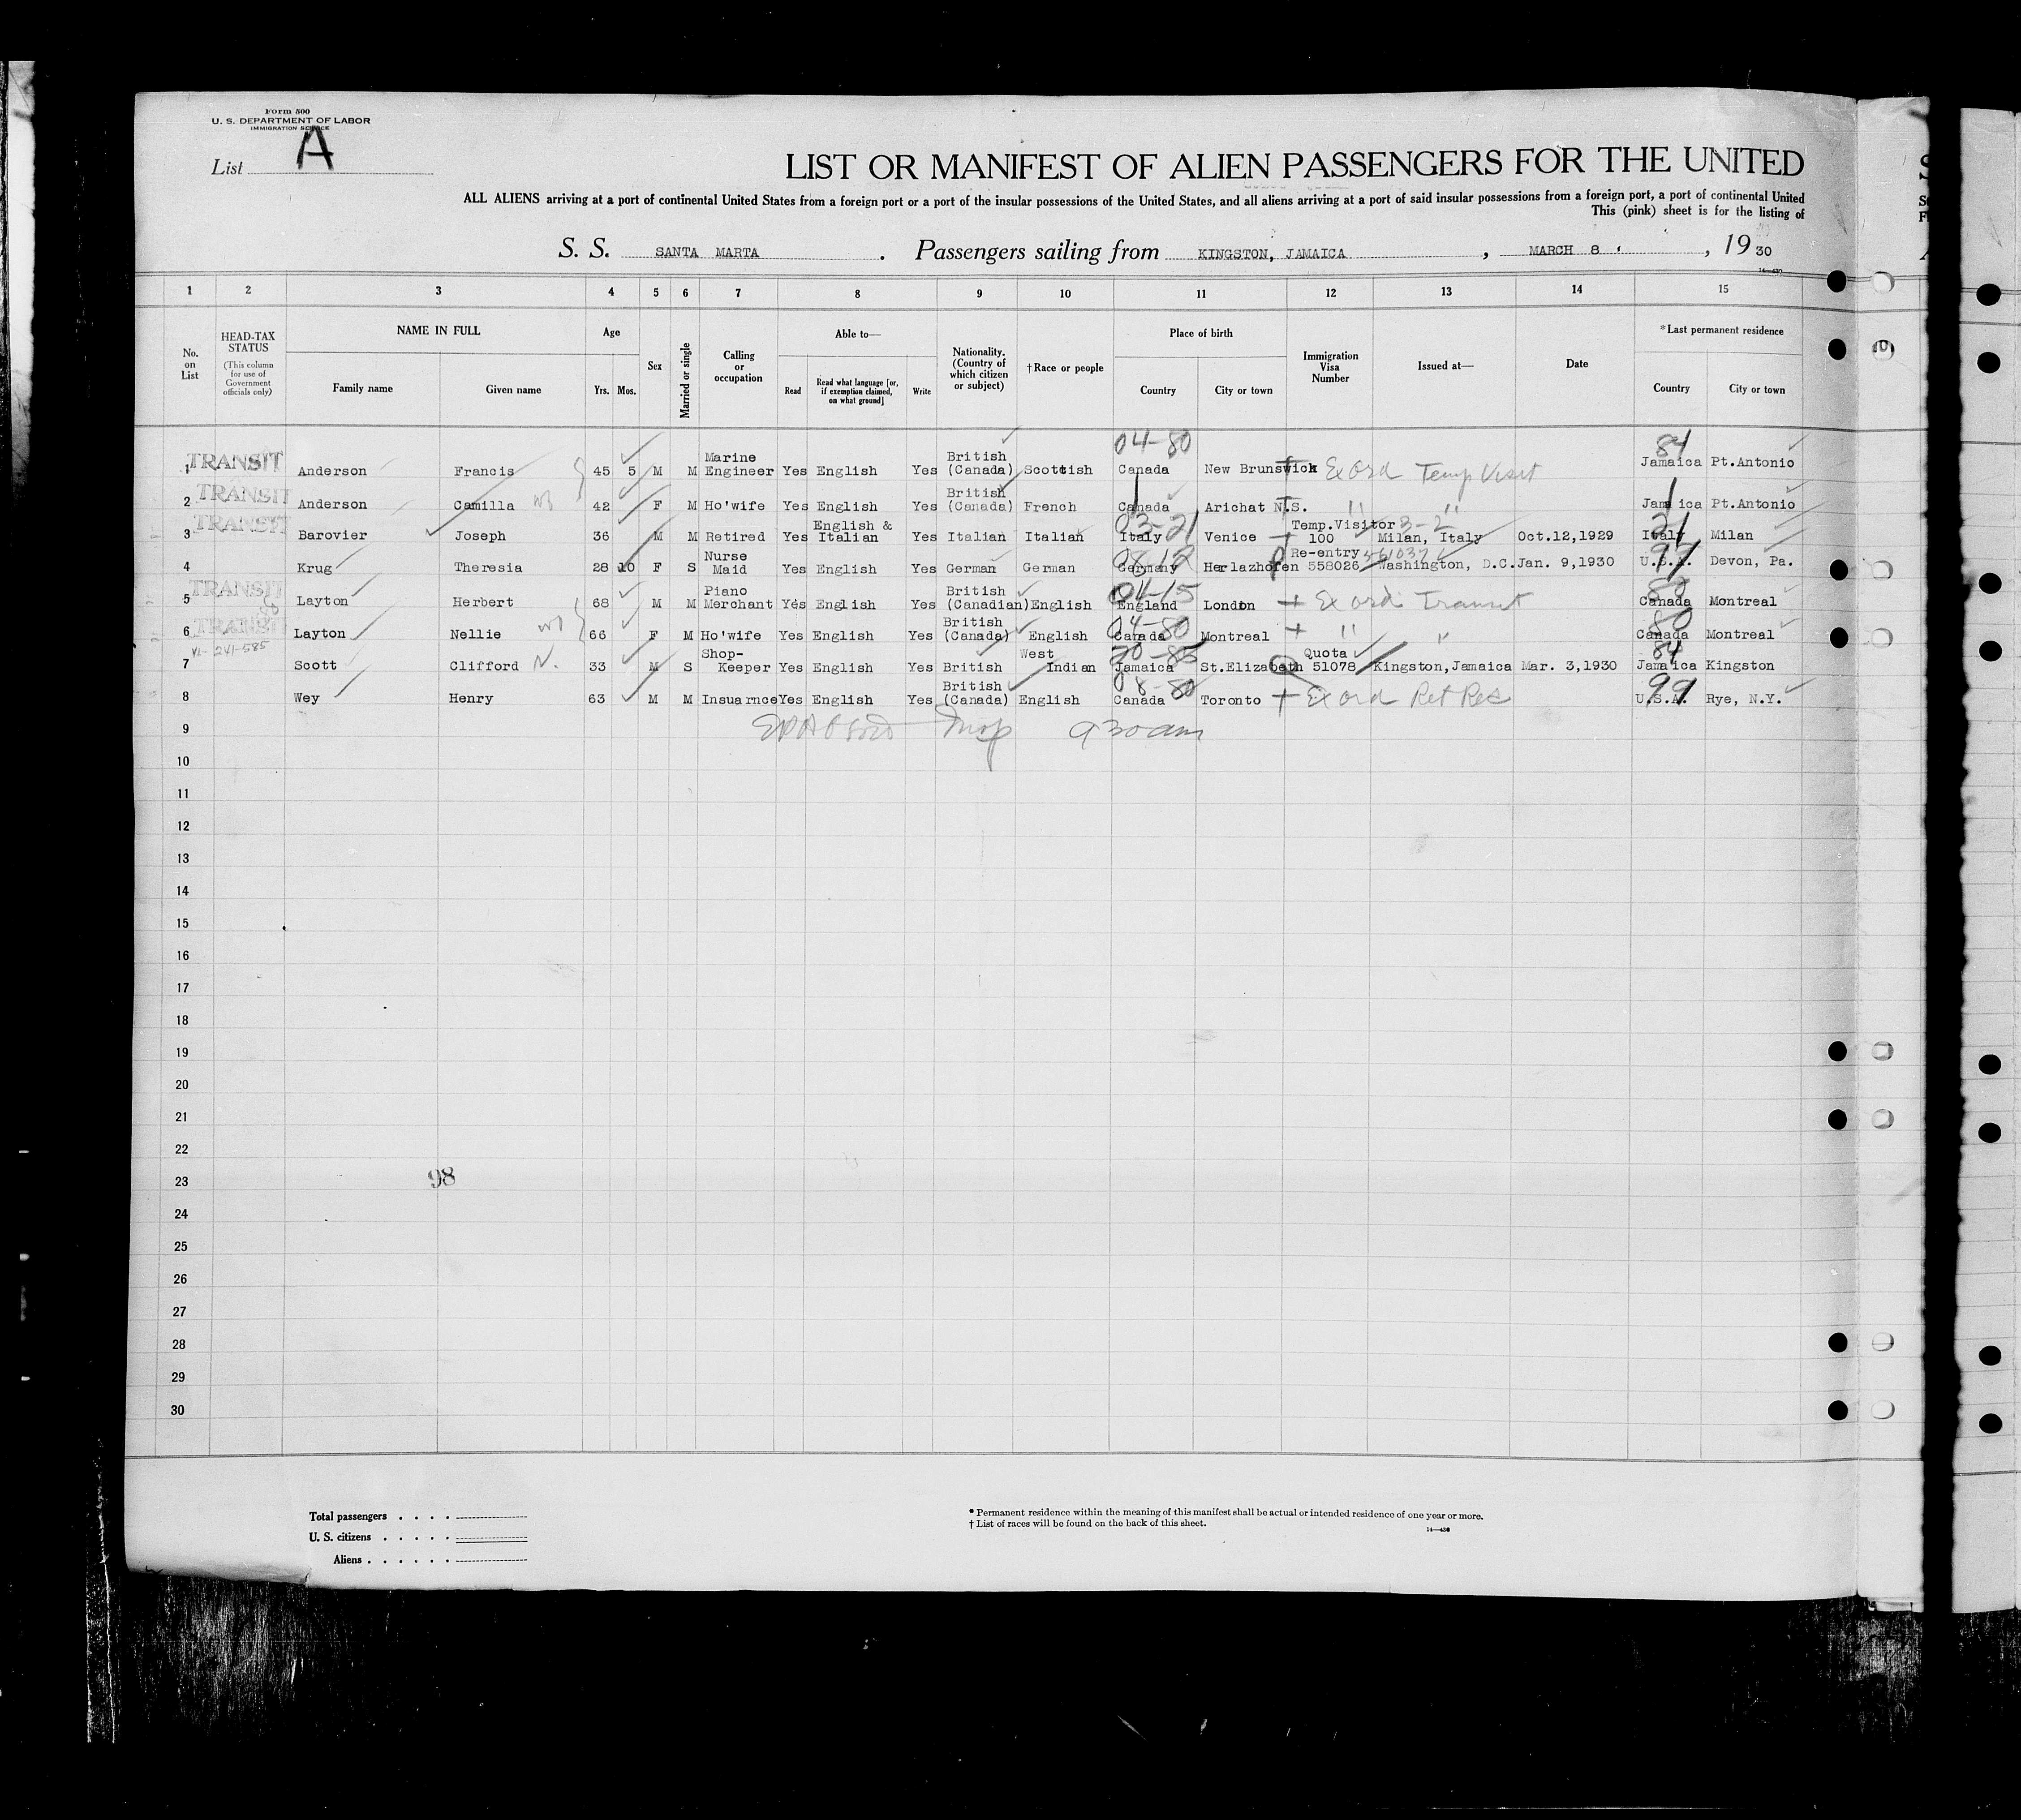 Form 500
U. S. DEPARTMENT OF LABOR
IMMIGRATION SERVICE
List A
LIST OR MANIFEST OF ALIEN PASSENGERS FOR THE UNITED
ALL ALIENS arriving at a port of continental United States from a foreign port or a port of the insular possessions of the United States, and all aliens arriving at a port of said insular possessions from a foreign port, a port of continental United
This (pink) sheet is for the listing of
S. S. SANTA MARTA. Passengers sailing from KINGSTON, JAMAICA, MARCH 8, 1930
1 2 3 4 5 6 7 8 9 10 11 12 13 14 15
No. on List
HEAD-TAX STATUS
(This column for use of Government officials only)
NAME IN FULL
Family name Given name
Age
Yrs. Mos.
Sex
Married or single
Calling or occupation
Able to—
Read Read what language [or, if exemption claimed, on what ground] Write
Nationality. (Country of which citizen or subject)
†Race or people
Place of birth
Country City or town
Immigration Visa Number
Issued at—
Date
*Last permanent residence
Country City or town
1 TRANSIT Anderson Francis 45 5 M M Marine Engineer Yes English Yes British (Canada) Scottish 04-80 Canada New Brunswick Ex Ord Temp Visit 84 Jamaica Pt.Antonio
2 TRANSIT Anderson Camilla 42 F M Ho'wife Yes English Yes British (Canada) French Canada Arichat N.S. " " Jamaica Pt.Antonio
3 TRANSIT Barovier Joseph 36 M M Retired Yes English & Italian Yes Italian Italian 03-21 Italy Venice Temp.Visitor 3-2 100 Milan, Italy Oct.12,1929 21 Italy Milan
4 Krug Theresia 28 10 F S Nurse Maid Yes English Yes German German Germany Herlazhofen Re-entry 558026 Washington, D.C. Jan. 9,1930 U.S.A. Devon, Pa.
5 TRANSIT Layton Herbert 68 M M Piano Merchant Yes English Yes British (Canadian) English 04-15 England London Ex Ord Transit 80 Canada Montreal
6 TRANSIT Layton Nellie 66 F M Ho'wife Yes English Yes British (Canada) English 04-80 Canada Montreal " " 80 Canada Montreal
7 Scott Clifford N. 33 M S Shop-Keeper Yes English Yes British West Indian Jamaica St.Elizabeth Quota 51078 Kingston,Jamaica Mar. 3,1930 84 Jamaica Kingston
8 Wey Henry 63 M M Insuarnce Yes English Yes British (Canada) English 08-80 Canada Toronto Ex Ord Ret Res 99 U.S.A. Rye, N.Y.
9 9 30 am
10
11
12
13
14
15
16
17
18
19
20
21
22
23 98
24
25
26
27
28
29
30
Total passengers
U. S. citizens
Aliens
* Permanent residence within the meaning of this manifest shall be actual or intended residence of one year or more.
† List of races will be found on the back of this sheet.